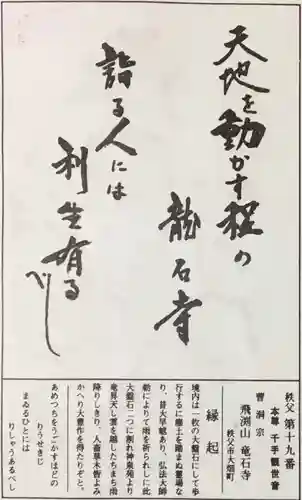 天地を動かす程の
龍石寺
詣る人には
利生有るべし
秩父 第十九番
本尊 千手観世音
曹洞宗
飛渕山 龍石寺
秩父市大畑町
縁起
境内は一枚の大盤石にして歩
行するに塵土を踏まぬ霊場な
り、昔大旱魃あり、弘法大師
勅によりて雨を祈られしに此
大盤石二つに割れ神泉宛より
竜昇天し雲を起したちまち雨
降りしきり、人畜草木皆よみ
かへり大豊作を得たりぞと。
あめつちをうごかすほどの
りうせきじ
まゐるひとには
りしやうあるべし